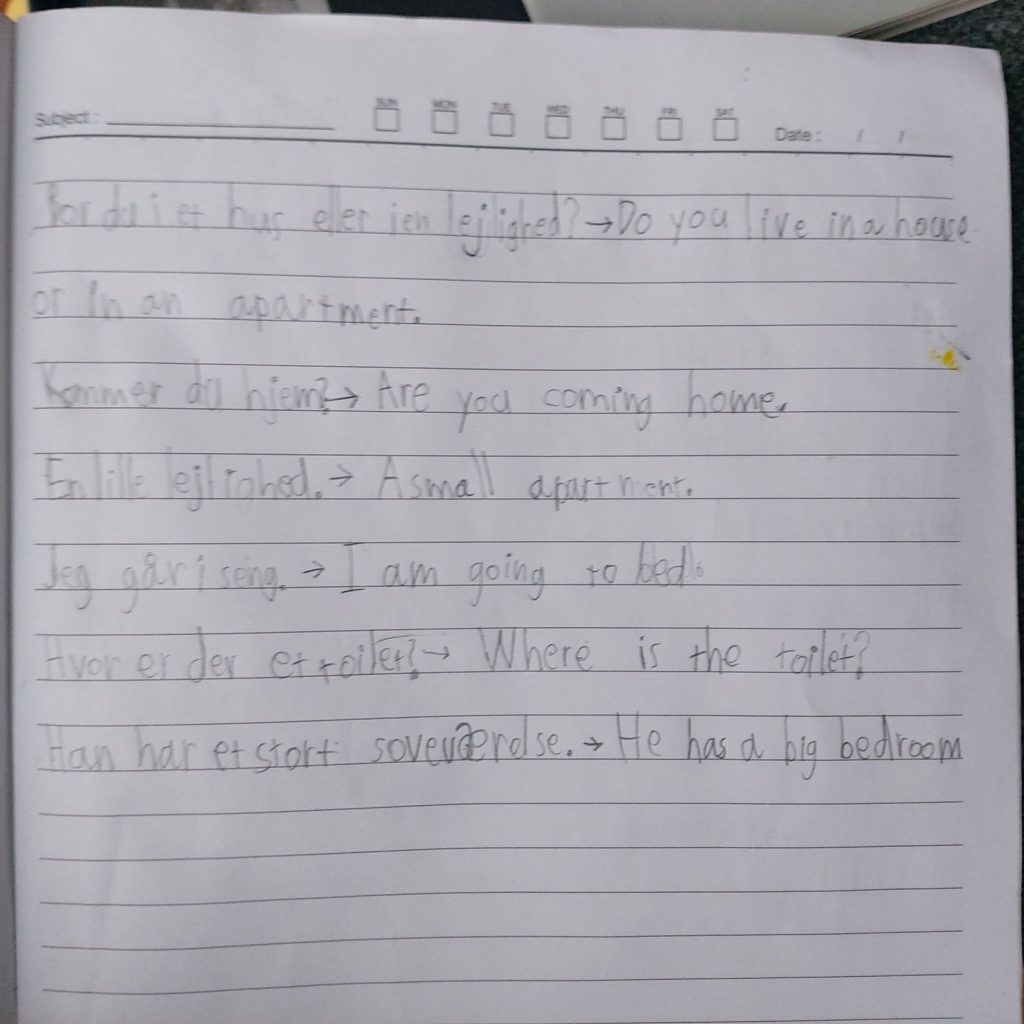 Subject : SUN MON TUE WED THU FRI SAT Date : / /
Bor du i et hus eller i en lejlighed? → Do you live in a house
or in an apartment.
Kommer du hjem? → Are you coming home.
En lille lejlighed. → A small apartment.
Jeg går i seng. → I am going to bed.
Hvor er der et toilet? → Where is the toilet?
Han har et stort soveværelse. → He has a big bedroom